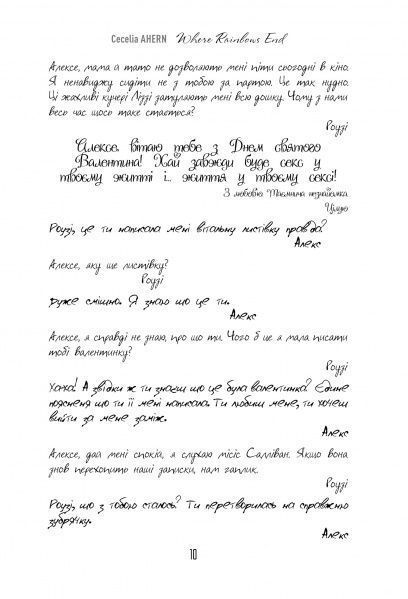 Cecelia AHERN Where Rainbows End
Алексе, мама й тато не дозволяють мені піти сьогодні в кіно.
Я ненавиджу сидіти не з тобою за партою. Це так нудно.
Ці жахливі кучері Ліззі затуляють мені всю дошку. Чому з нами
весь час щось таке стається?
Роузі
Алексе, вітаю тебе з Днем святого
Валентина! Хай завжди буде секс у
твоєму житті і... життя у твоєму сексі!
З любов'ю. Таємнича незнайомка.
Цілую
Роузі, це ти написала мені вітальну листівку правда?
Алекс
Алексе, яку ще листівку?
Роузі
Дуже смішно. Я знаю що це ти.
Алекс
Алексе, я справді не знаю, про що ти. Чого б це я мала писати
тобі валентинку?
Роузі
Хаха! А звідки ж ти знаєш що це була валентинка? Єдине
пояснення що ти її мені написала. Ти любиш мене, ти хочеш
вийти за мене заміж.
Алекс
Алексе, дай мені спокій, я слухаю місіс Салліван. Якщо вона
знов перехопить наші записки, нам гаплик.
Роузі
Роузі, що з тобою сталось? Ти перетворилась на справжню
зубрячку.
Алекс
10